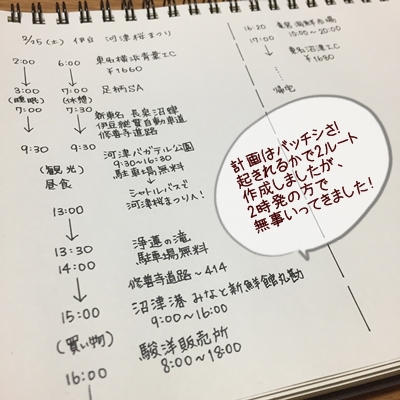 2/25(土) 伊豆 河津桜まつり
2:00 6:00 東名横浜青葉IC
¥1660
3:00 7:00 足柄SA
(睡眠) (休憩)
7:00 7:30 新東名 長泉沼津
伊豆縦貫自動車道
修善寺道路
9:30 9:30 河津バガテル公園
(観光) 9:30〜16:30
昼食 駐車場無料
シャトルバスで
河津桜まつり入り!
13:00
13:30 浄蓮の滝
14:00 駐車場無料
修善寺道路〜414
15:00 沼津港 みなと新鮮館
9:00〜16:00
(買い物) 駿洋販売所
8:00〜18:00
16:00
16:20
17:00 10:00〜20:00
東名沼津IC
¥1680
帰宅
計画はバッチシさ!
起きれるかで2ルート
作成しましたが、
2時発の方で
無事いってきました!